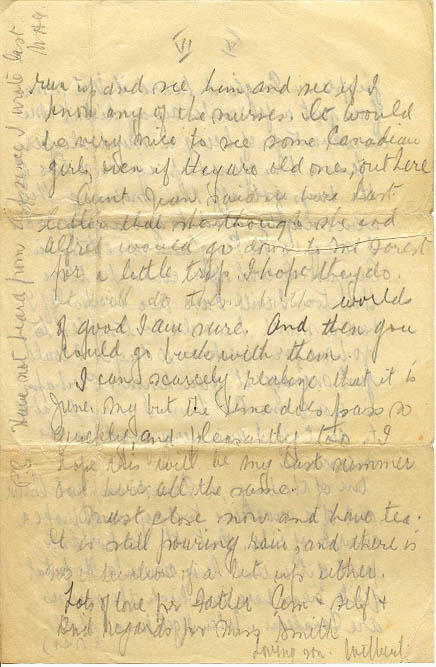 VI
run up and see him and see if I
know any of the nurses. It would
be very nice to see some Canadian
girls, even if they are old ones, out here
Aunt Jean said in her last
letter that she thought she and
Alfred would go down to Forest
for a little trip. I hope they do.
It would do them both worlds
of good I am sure. And then you
could go back with them.
I can scarcely realize that it is
June. My but the time does pass so
quickly, and pleasantly too. I
hope this will be my last summer
over here, all the same.
Must close now and have tea.
It is still pouring rain, and there is
no indication of a let up either.
Lots of love for Father & self &
Best regards for Miss Smith
Loving son.
P.S. Have not heard from since I wrote last